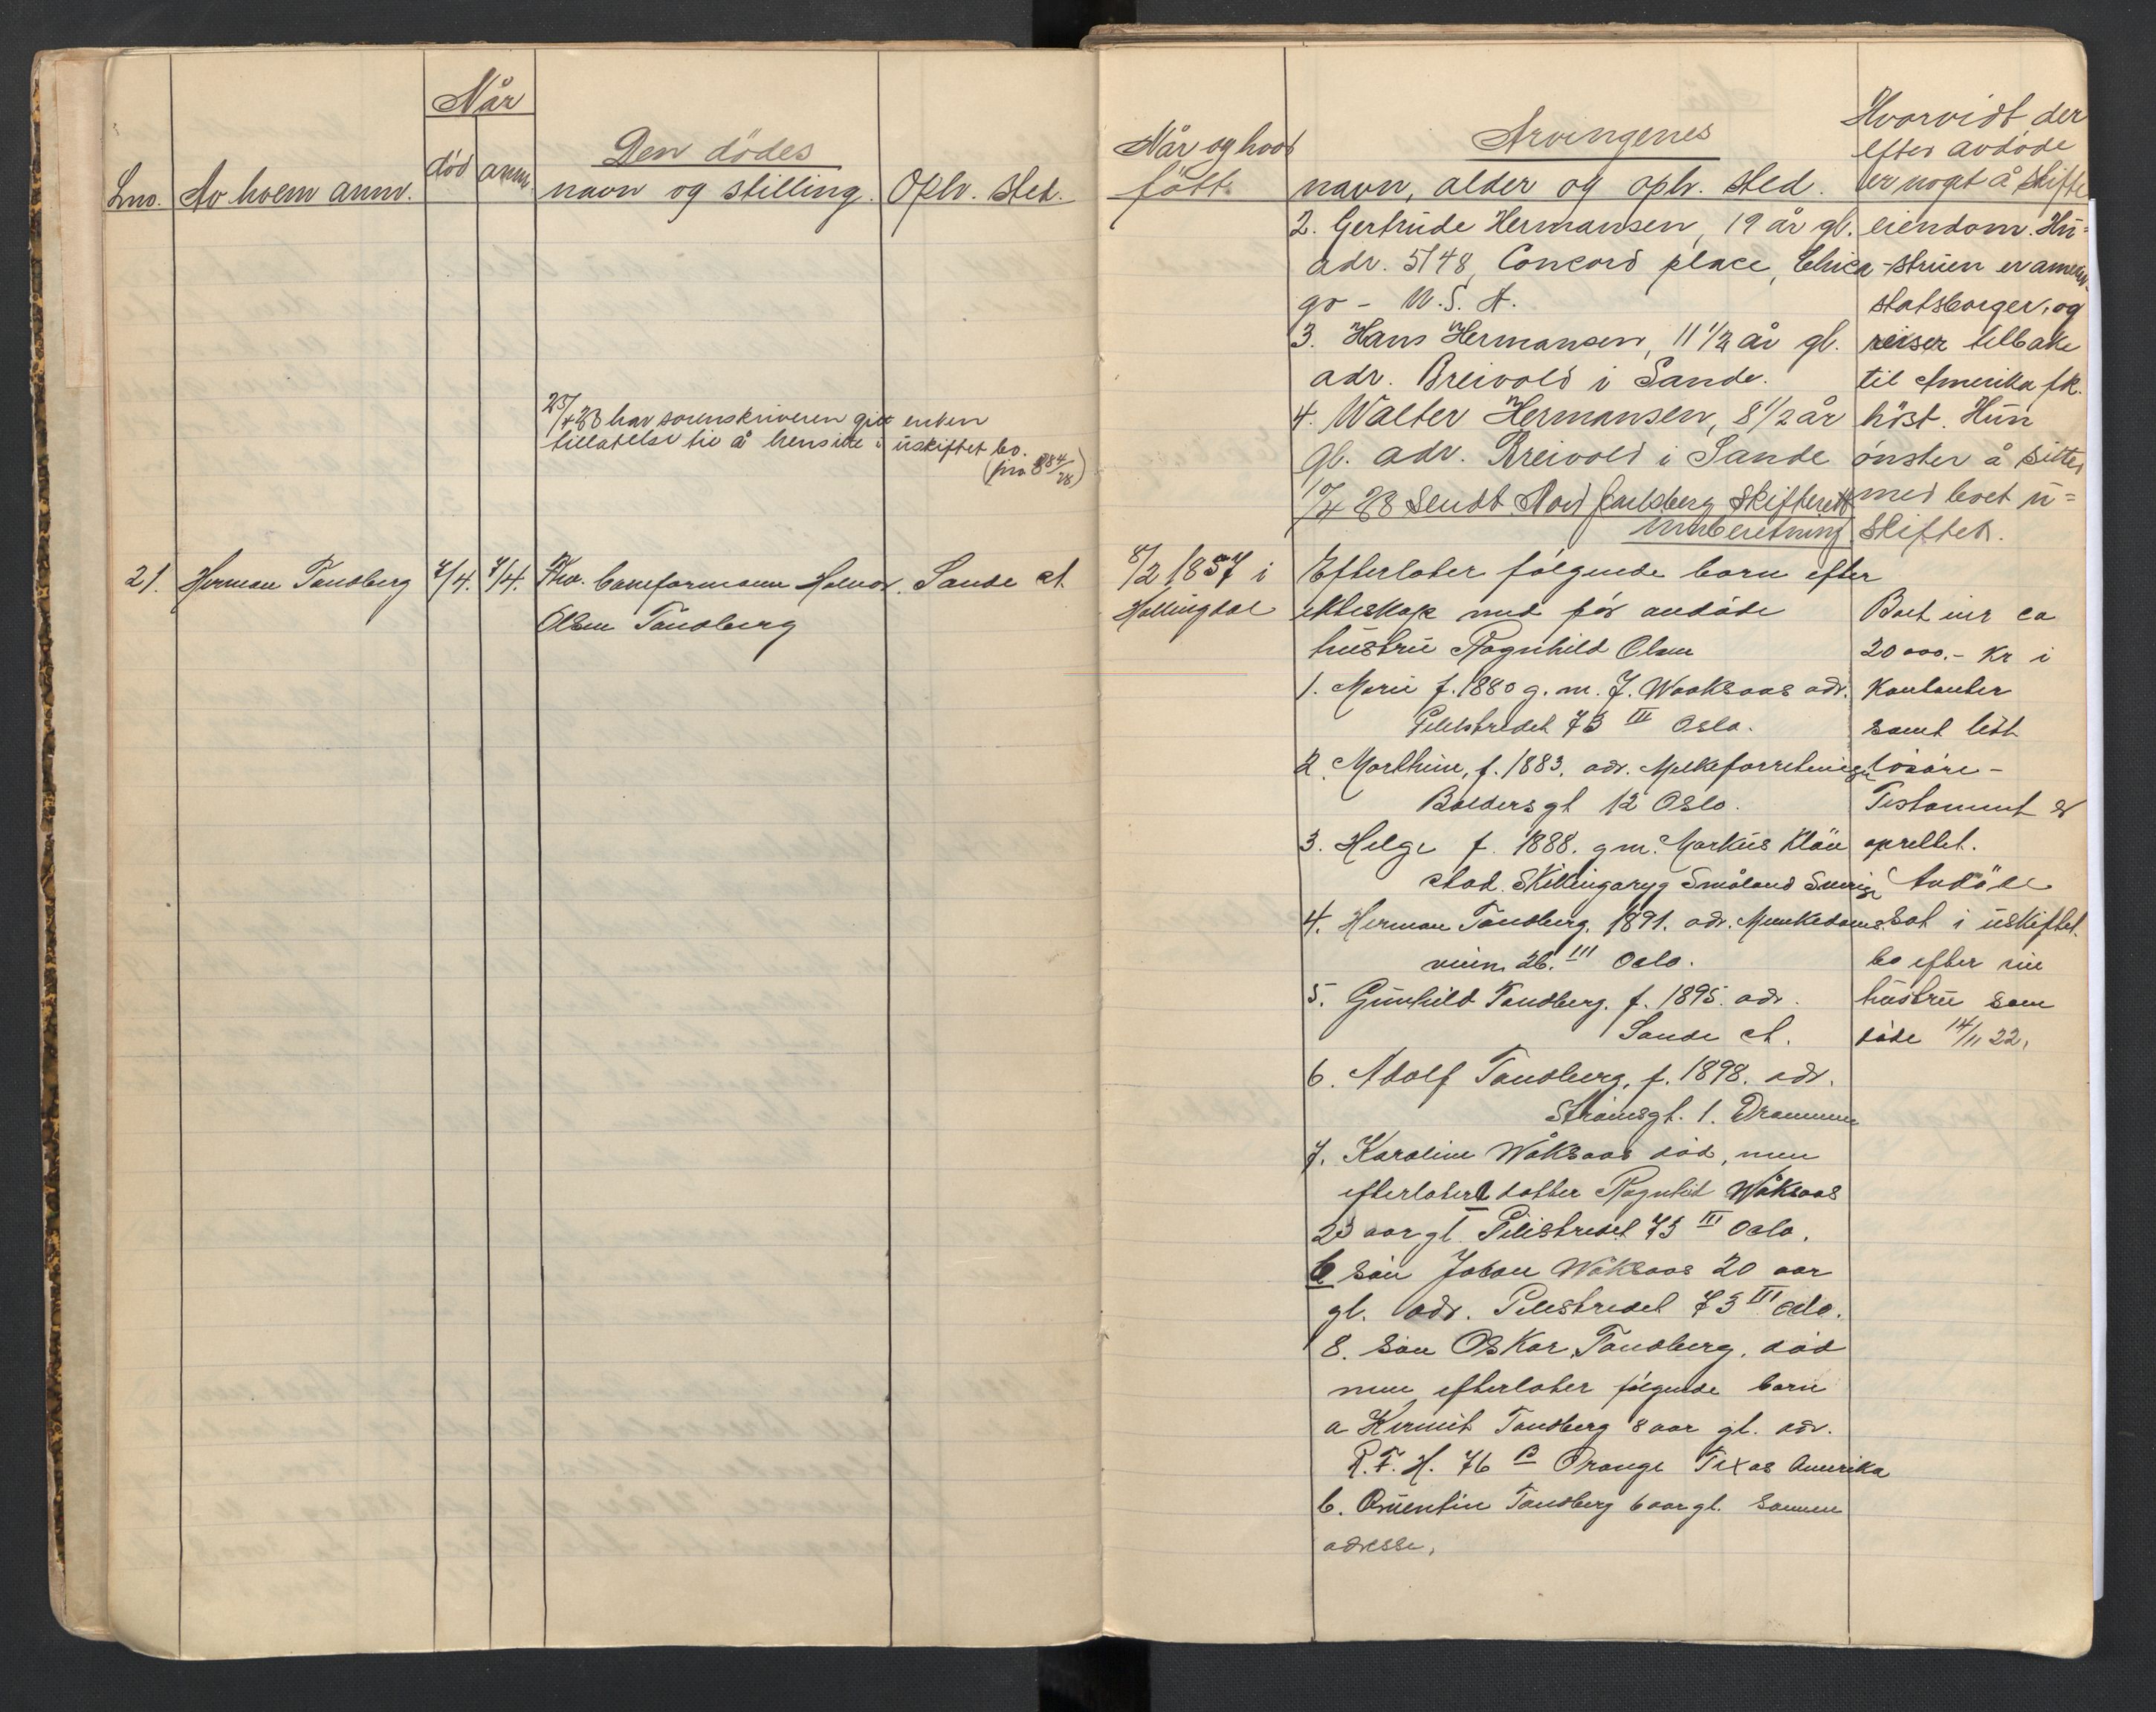 Når
Den dødes
Lno. Av hvem anm. død anm. navn og stilling. Oplv. sted.
25/4 28 har sorenskriveren gitt enken
tillatelse til å hensitte i uskiftet bo.
(jnr 884/28)
21. Herman Tandberg 7/4. 7/4. Fhv. baneformann Halvor Sande st.
Olsen Tandberg
Når og hvor
født.
Arvingenes
navn, alder og oplv. sted.
Hvorvidt der
efter avdøde
er noget å skifte
2. Gertrude Hermansen, 19 år gl.
adr. 5148, Concord place, Chica-
go - U.S.A.
3. Hans Hermansen, 11 1/2 år gl.
adr. Breivold i Sande.
4. Walter Hermansen, 8 1/2 år
gl. adr. Breivold i Sande
10/4 28 sendt Nord Jarlsberg Skifterett
innberetning
eiendom. Hu=
struen er amerik.
statsborger, og
reiser tilbake
til Amerika fk.
høst. Hun
ønsker å sitte
med boet u=
skiftet.
8/2 1857 i
Hallingdal
Efterlater følgende barn efter
ekteskap med før avdøde
hustru Ragnhild Olsen
1. Marie f. 1880 g. m. J. Waaksaas adr.
Pilestredet 73 III Oslo.
2. Marthine, f. 1883. adr. Melkeforretningen
Baldersgt 12 Oslo.
3. Helge f. 1888. gm. Markus
stad. Skillingaryg Småland Sverige
4. Herman Tandberg. 1891. adr. Munkedams-
veien 26. III Oslo.
5. Gunhild Tandberg. f. 1895. adr.
Sande st.
6. Adolf Tandberg, f. 1898. adr.
Strømsgt. 1. Drammen
7. Karoline Wåksaas død, men
efterlater a datter Ragnhild Wåksaas
23 aar gl. Pilestredet 73 III Oslo.
b søn Johan Wåksaas 20 aar
gl. adr. Pilestredet 73 III Oslo.
8. Søn Oskar Tandberg, død
men efterlater følgende barn
a Kermit Tandberg 8 aar gl. adr.
R. F. H. 76 B Orange Texas Amerika
b. Quentin Tandberg 6 aar gl. samme
adresse.
Boet eier ca
20 000.- Kr i
Kontanter
samt litt
løsøre -
Testament er
oprettet.
Avdøde
sat i uskiftet
bo efter sin
hustru som
døde 14/11 22.